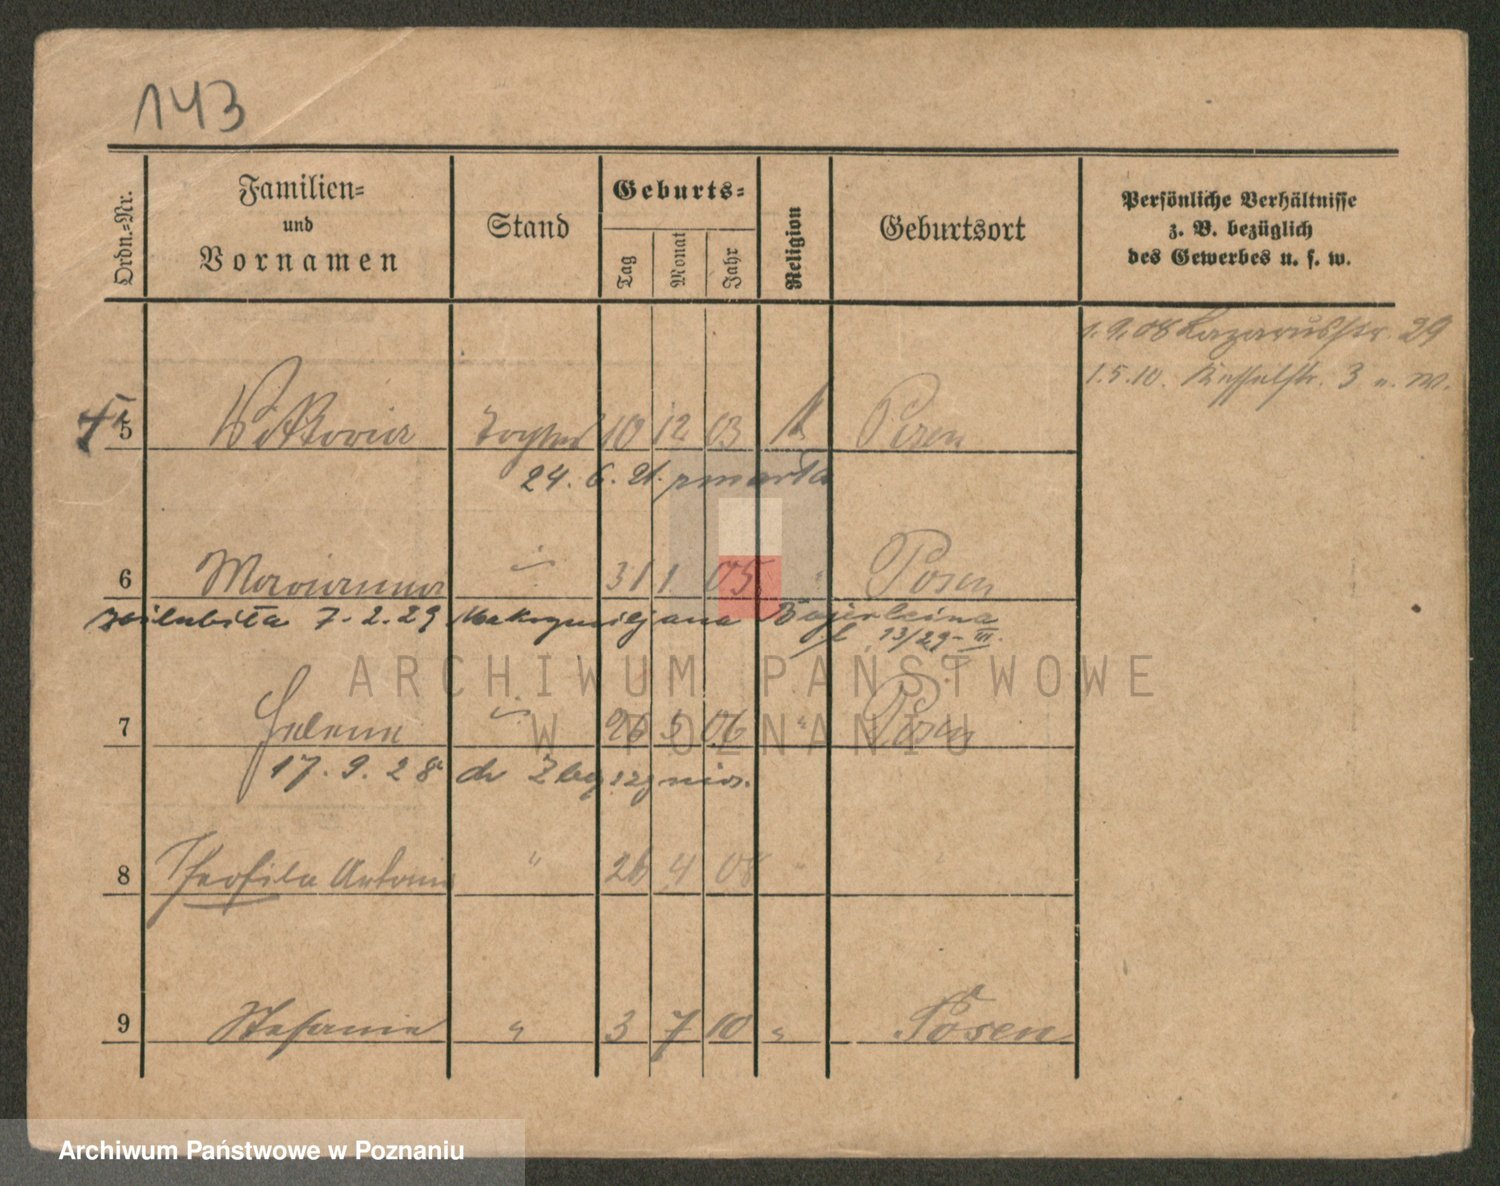 143
Ordn.-Nr.
Familien-
und
Vornamen
Stand
Geburts-
Tag
Monat
Jahr
Religion
Geburtsort
Persönliche Verhältnisse
z. B. bezüglich
des Gewerbes u. s. w.
1.9.08 Lazarusstr. 29
1.5.10. 3
† 5 Viktoria Tochter 10 12 03 k Posen
24. 6. 21. zmarła
6 Marianna " 31 1 05 " Posen
zaślubiła 7. 2. 29 Maksymiljana
13/29 - III.
7 Helene " 26 5 06 " Posen
17. 9. 28 do
8 Theofila Antonie " 26 4 08 "
9 Stefanie " 3 7 10 " Posen
ARCHIWUM PAŃSTWOWE
W POZNANIU
Archiwum Państwowe w Poznaniu